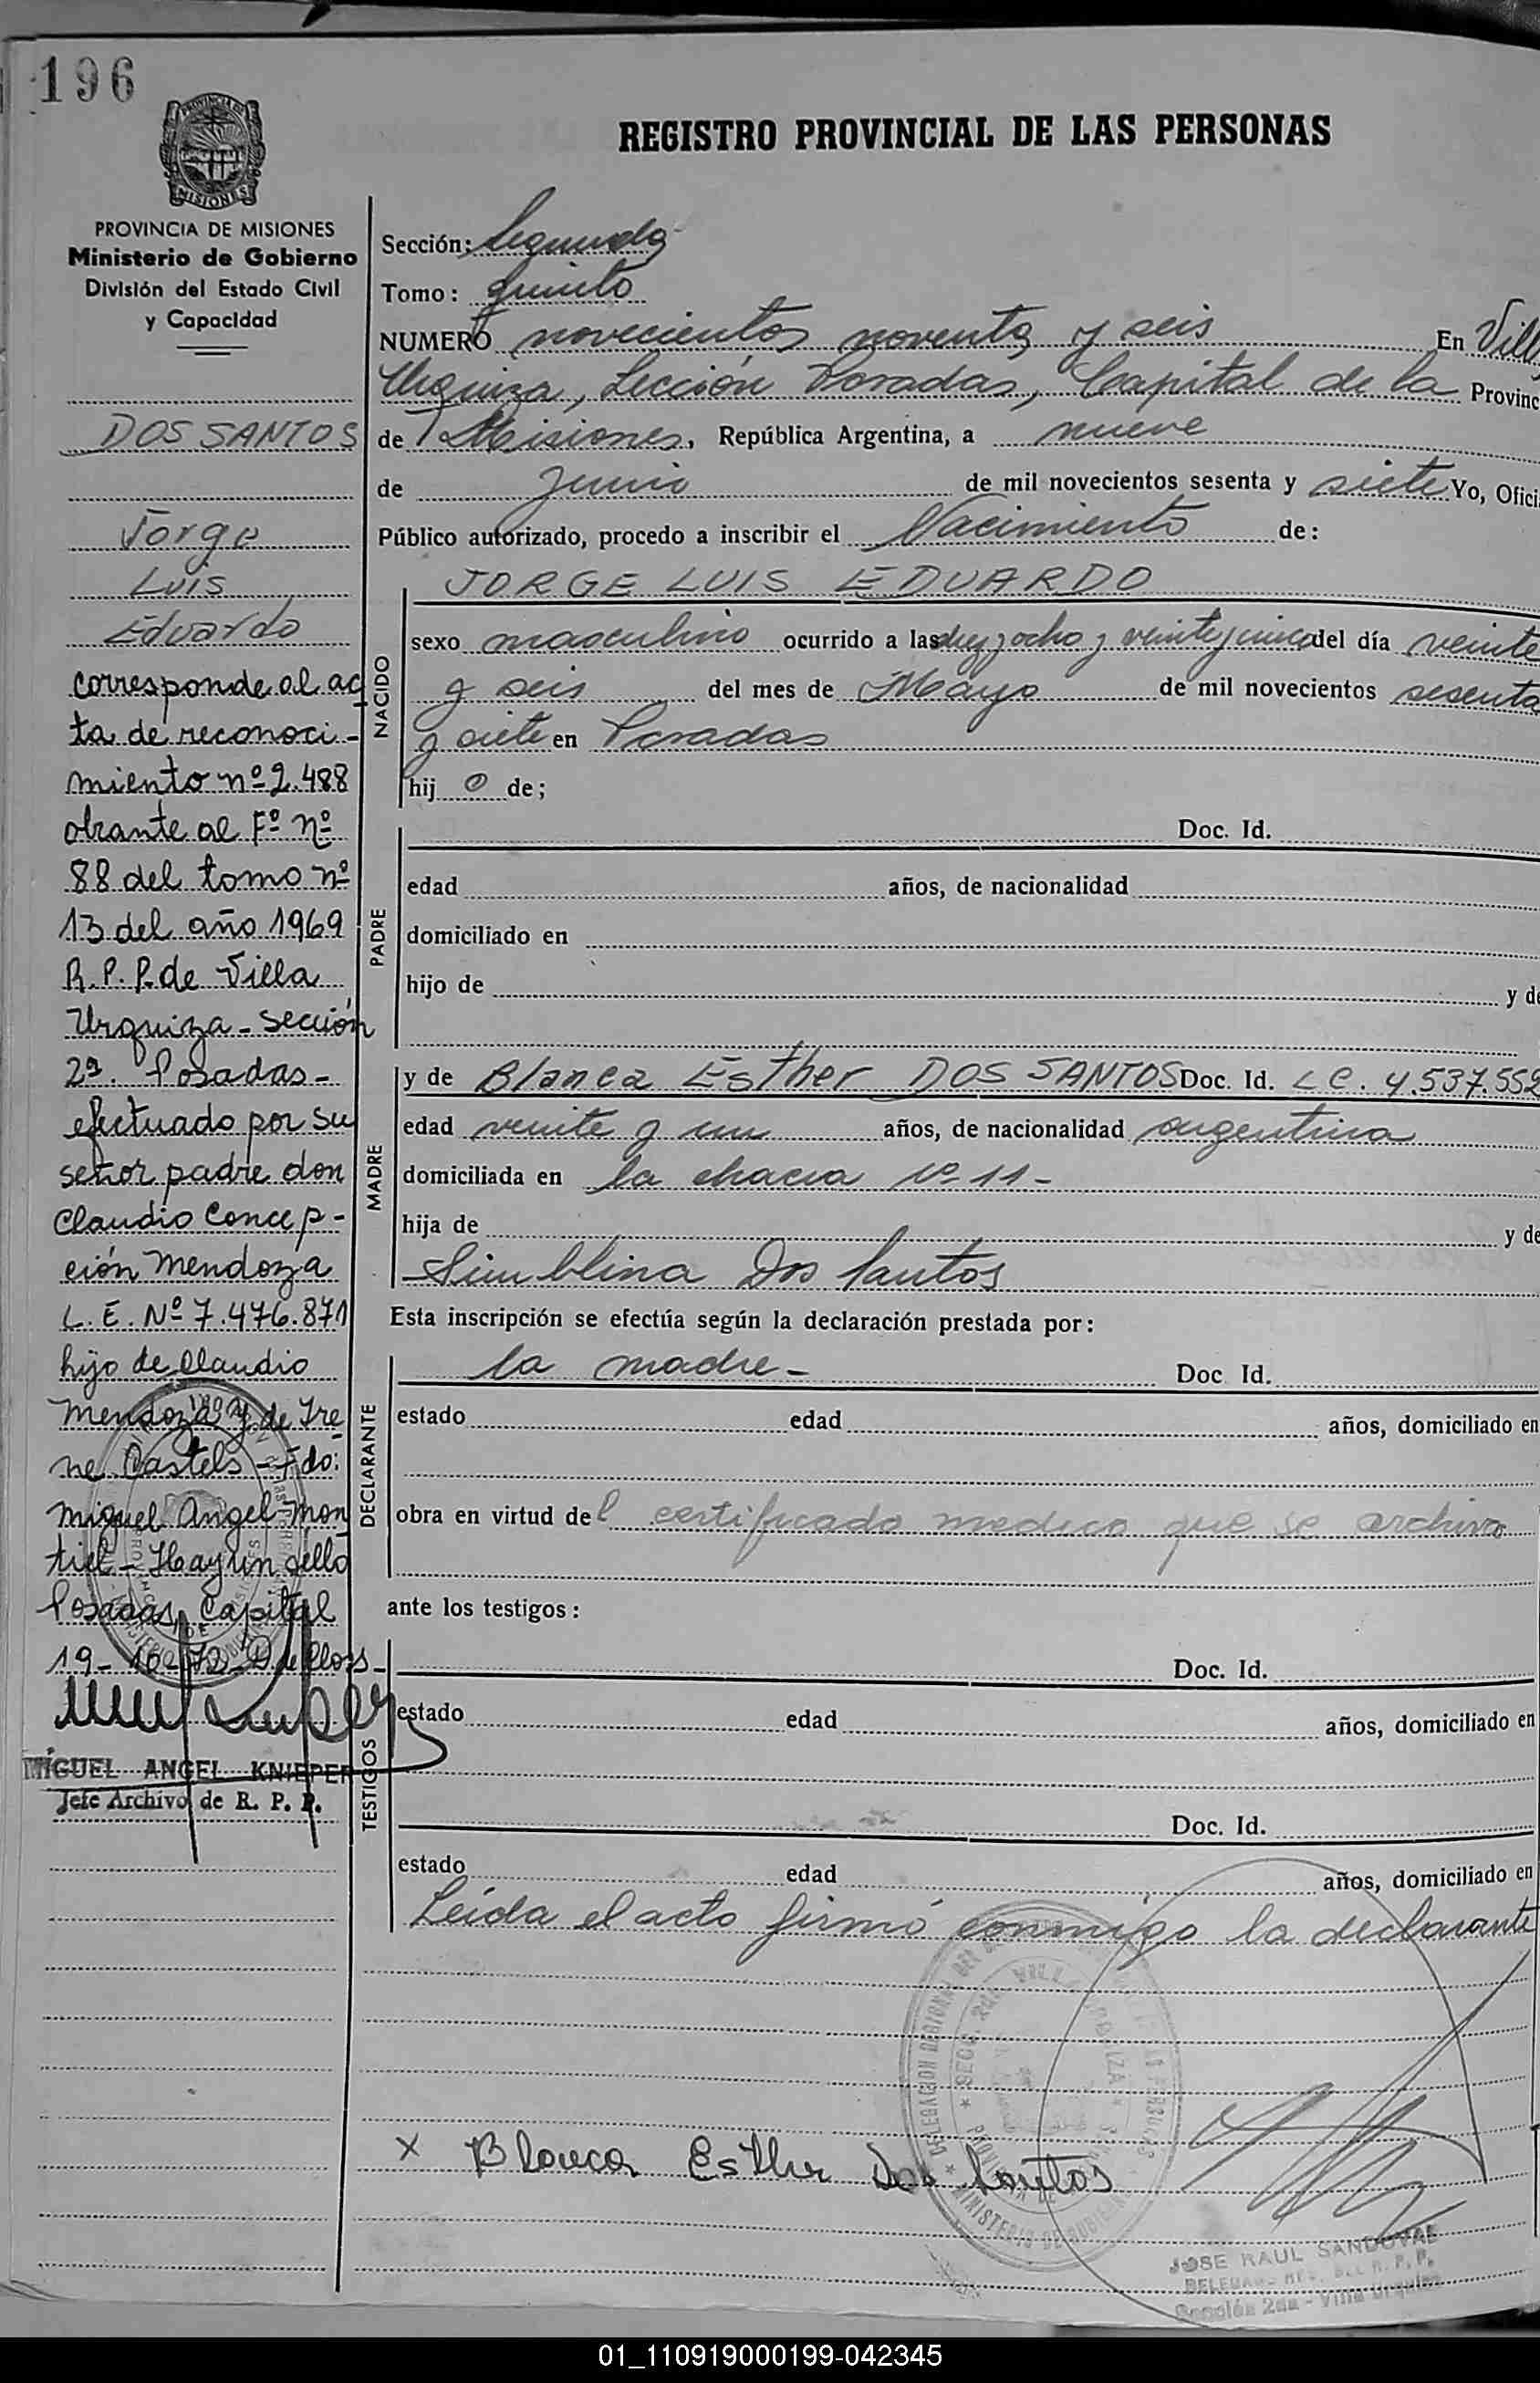 196
REGISTRO PROVINCIAL DE LAS PERSONAS
PROVINCIA DE MISIONES
MISIONES
PROVINCIA DE MISIONES
Ministerio de Gobierno
División del Estado Civil
y Capacidad
DOS SANTOS
Jorge
Luis
Eduardo
corresponde al ac
ta de reconoci-
miento nº 2.488
obrante al Fº nº
88 del tomo nº
13 del año 1969
R.P.P. de Villa
Urquiza - sección
2ª. Posadas -
efectuado por su
señor padre don
Claudio Concep-
ción Mendoza
L.E. Nº 7.476.871
hijo de Claudio
Mendoza y de Ire
ne Castels - Fdo:
Miguel Angel Mon
tiel - Hay un sello
Posadas, Capital
19-10-72
MIGUEL ANGEL KNIEPER
Jefe Archivo de R. P. P.
Sección: Segunda
Tomo: Quinto
NUMERO novecientos noventa y seis En Vill
Urquiza, Sección Posadas, Capital de la Provinc
de Misiones, República Argentina, a nueve
de Junio de mil novecientos sesenta y siete Yo, Ofici
Público autorizado, procedo a inscribir el Nacimiento de:
NACIDO
JORGE LUIS EDUARDO
sexo masculino ocurrido a las diez y ocho y veinte y cinco del día veinte
y seis del mes de Mayo de mil novecientos sesenta
y siete en Posadas
hij o de;
PADRE
Doc. Id.
edad años, de nacionalidad
domiciliado en
hijo de y de
MADRE
y de Blanca Esther DOS SANTOS Doc. Id. LC. 4.537.552
edad veinte y un años, de nacionalidad argentina
domiciliada en la chacra Nº 11 -
hija de y de
Simblina Dos Santos
Esta inscripción se efectúa según la declaración prestada por:
DECLARANTE
la madre - Doc Id.
estado edad años, domiciliado en
obra en virtud del certificado medico que se archiva
ante los testigos:
TESTIGOS
Doc. Id.
estado edad años, domiciliado en
Doc. Id.
estado edad años, domiciliado en
Leida el acto firmó conmigo la declarante
x Blanca Esther Dos Santos
JOSE RAUL SANDOVAL
Sección 2da - Villa Urquiza
01_110919000199-042345